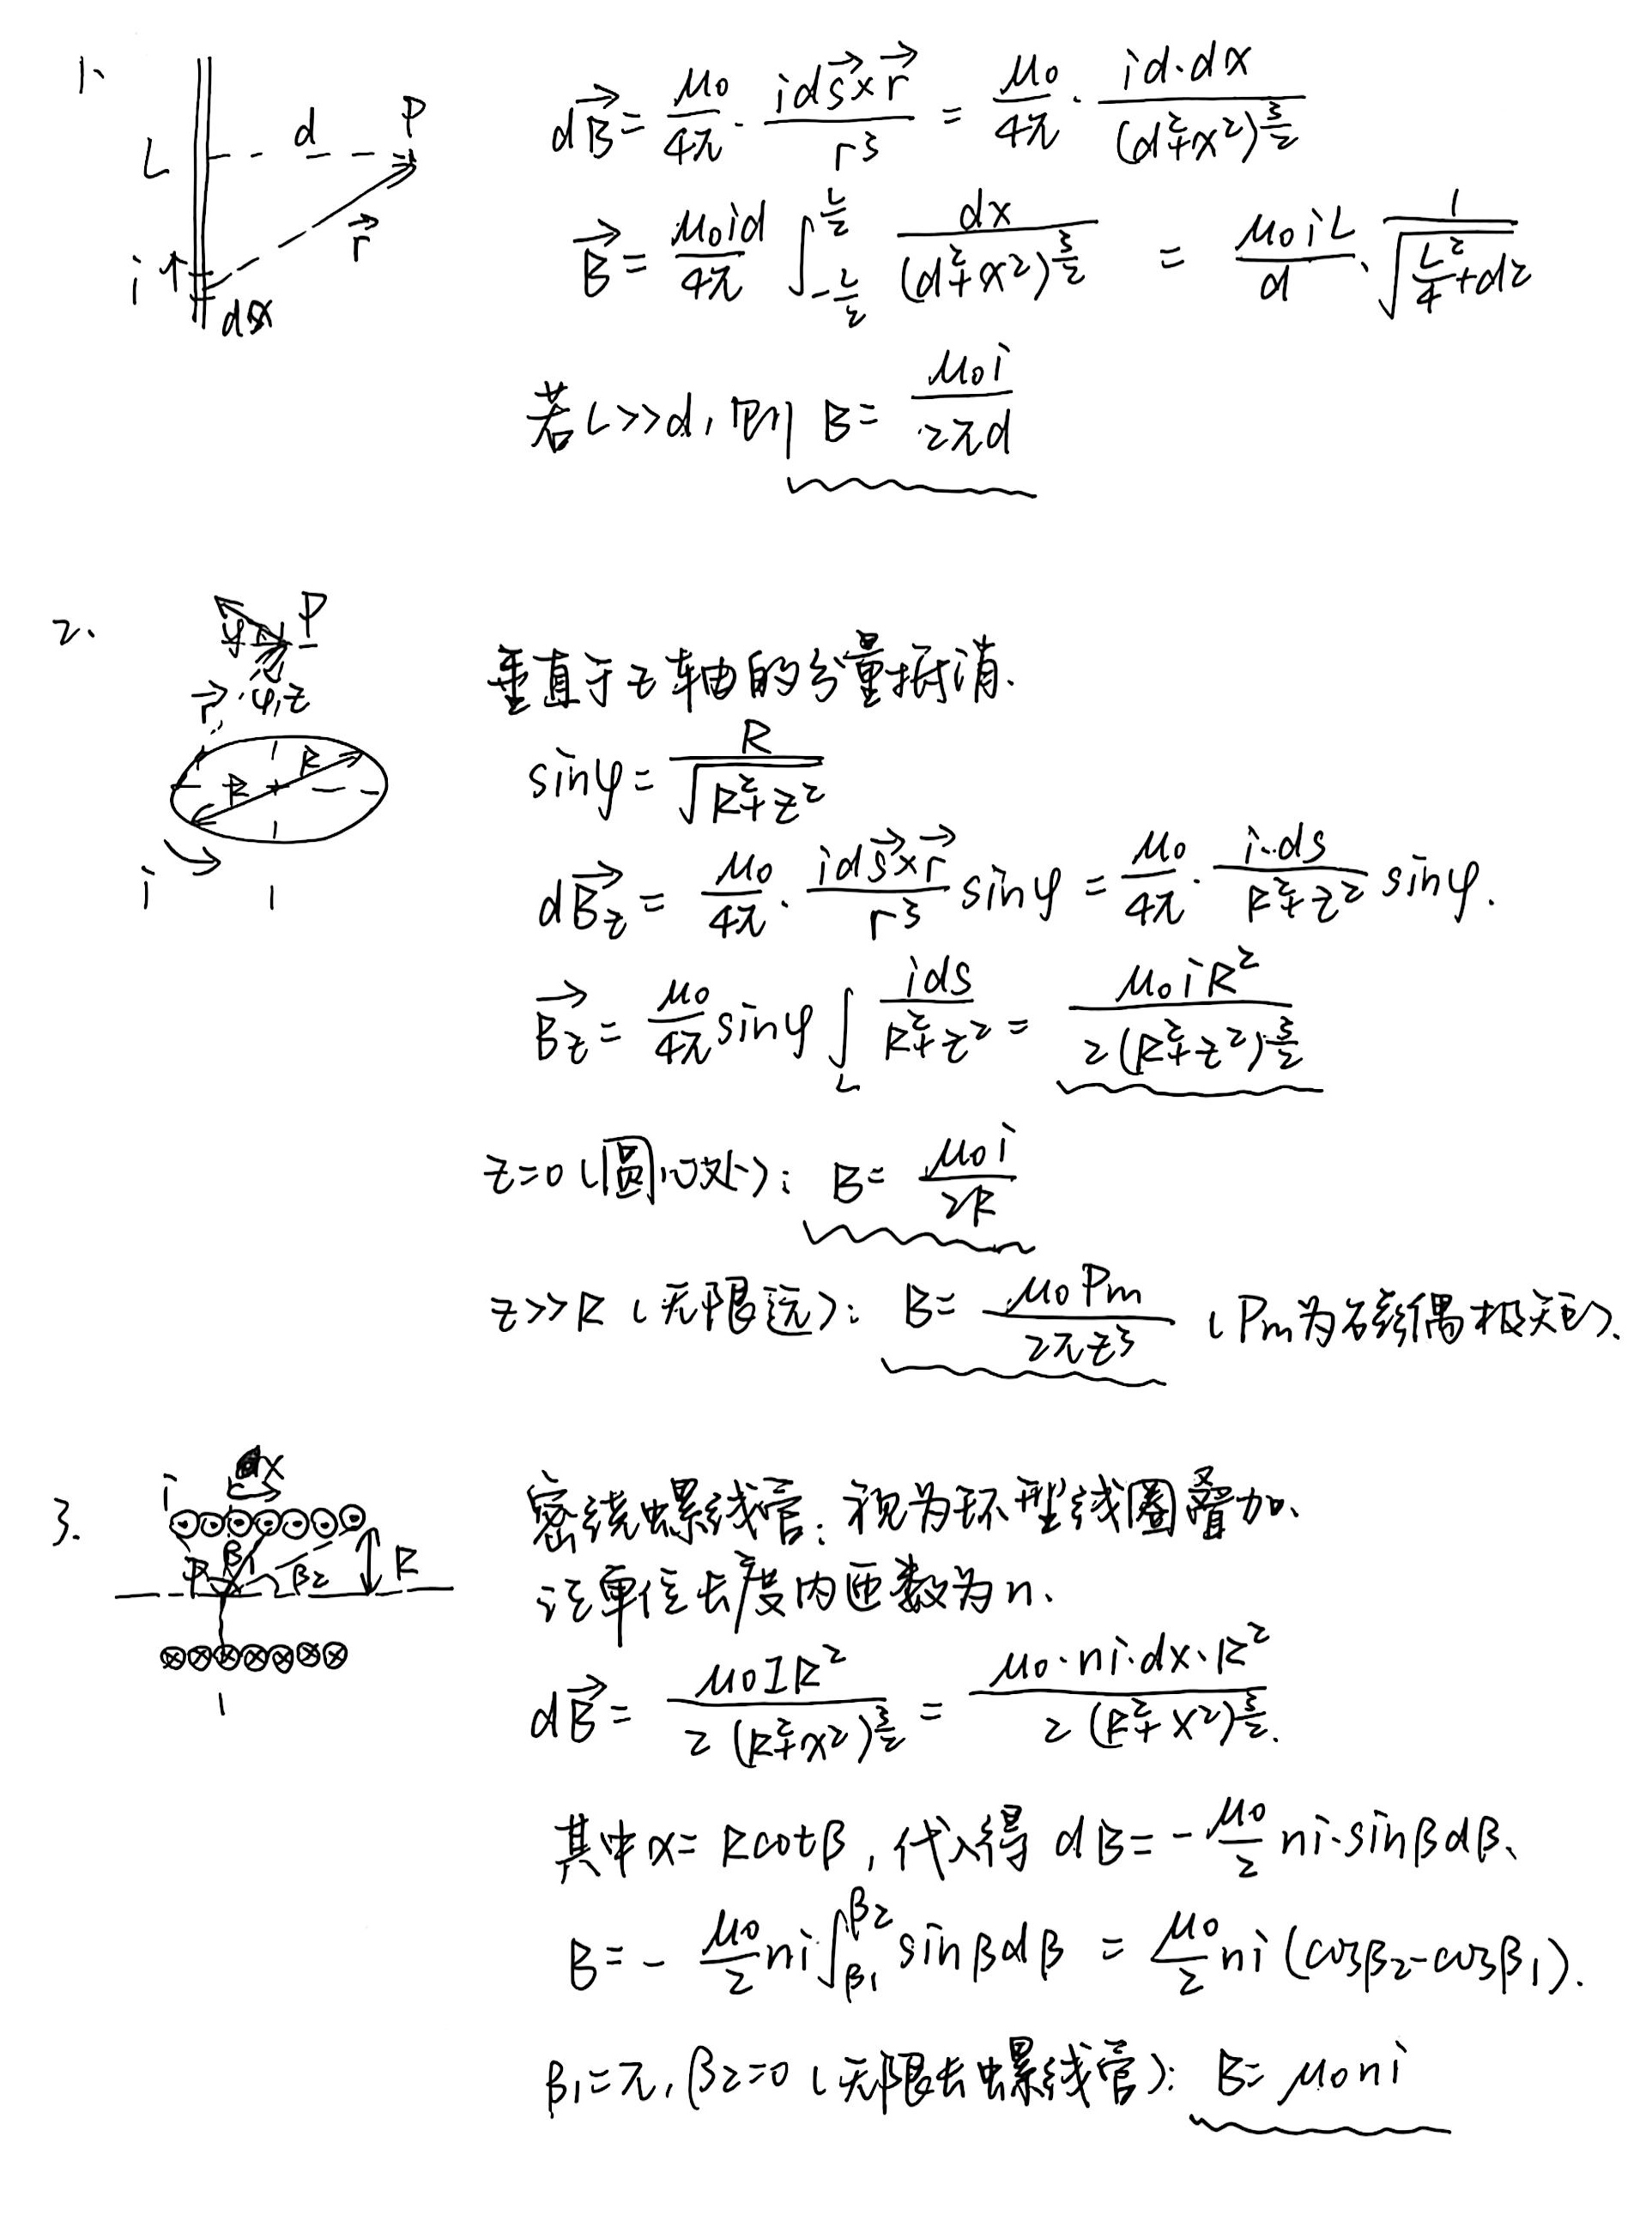 1、
L
d
P
r⃗
i
dx
dB⃗ = μ₀/4π · ids⃗×r⃗/r³ = μ₀/4π · id·dx/(d²+x²)^(3/2)
B⃗ = μ₀id/4π ∫_{-L/2}^{L/2} dx/(d²+x²)^(3/2) = μ₀iL/d · 1/√(L²/4+d²)
若L>>d，则 B = μ₀i/2πd
2、
P
φ
r⃗
φ z
R
R
i
垂直于z轴的分量抵消.
sinφ = R/√(R²+z²)
dB⃗z = μ₀/4π · ids⃗×r⃗/r³ sinφ = μ₀/4π · i·ds/(R²+z²) sinφ.
B⃗z = μ₀/4π sinφ ∫_L ids/(R²+z²) = μ₀iR²/2(R²+z²)^(3/2)
z=0（圆心处）： B = μ₀i/2R
z>>R（无限远）： B = μ₀Pm/2πz³ （Pm为磁偶极矩）.
3.
i
dx
β₁
β₂
P
R
密绕螺线管：视为环型线圈叠加、
记单位长度内匝数为n、
dB⃗ = μ₀IR²/2(R²+x²)^(3/2) = μ₀·ni·dx·R²/2(R²+x²)^(3/2).
其中x=Rcotβ，代入得 dB = -μ₀/2 ni·sinβdβ、
B = -μ₀/2 ni∫_{β₁}^{β₂} sinβdβ = μ₀/2 ni(cosβ₂-cosβ₁).
β₁=π，β₂=0（无限长螺线管）： B = μ₀ni